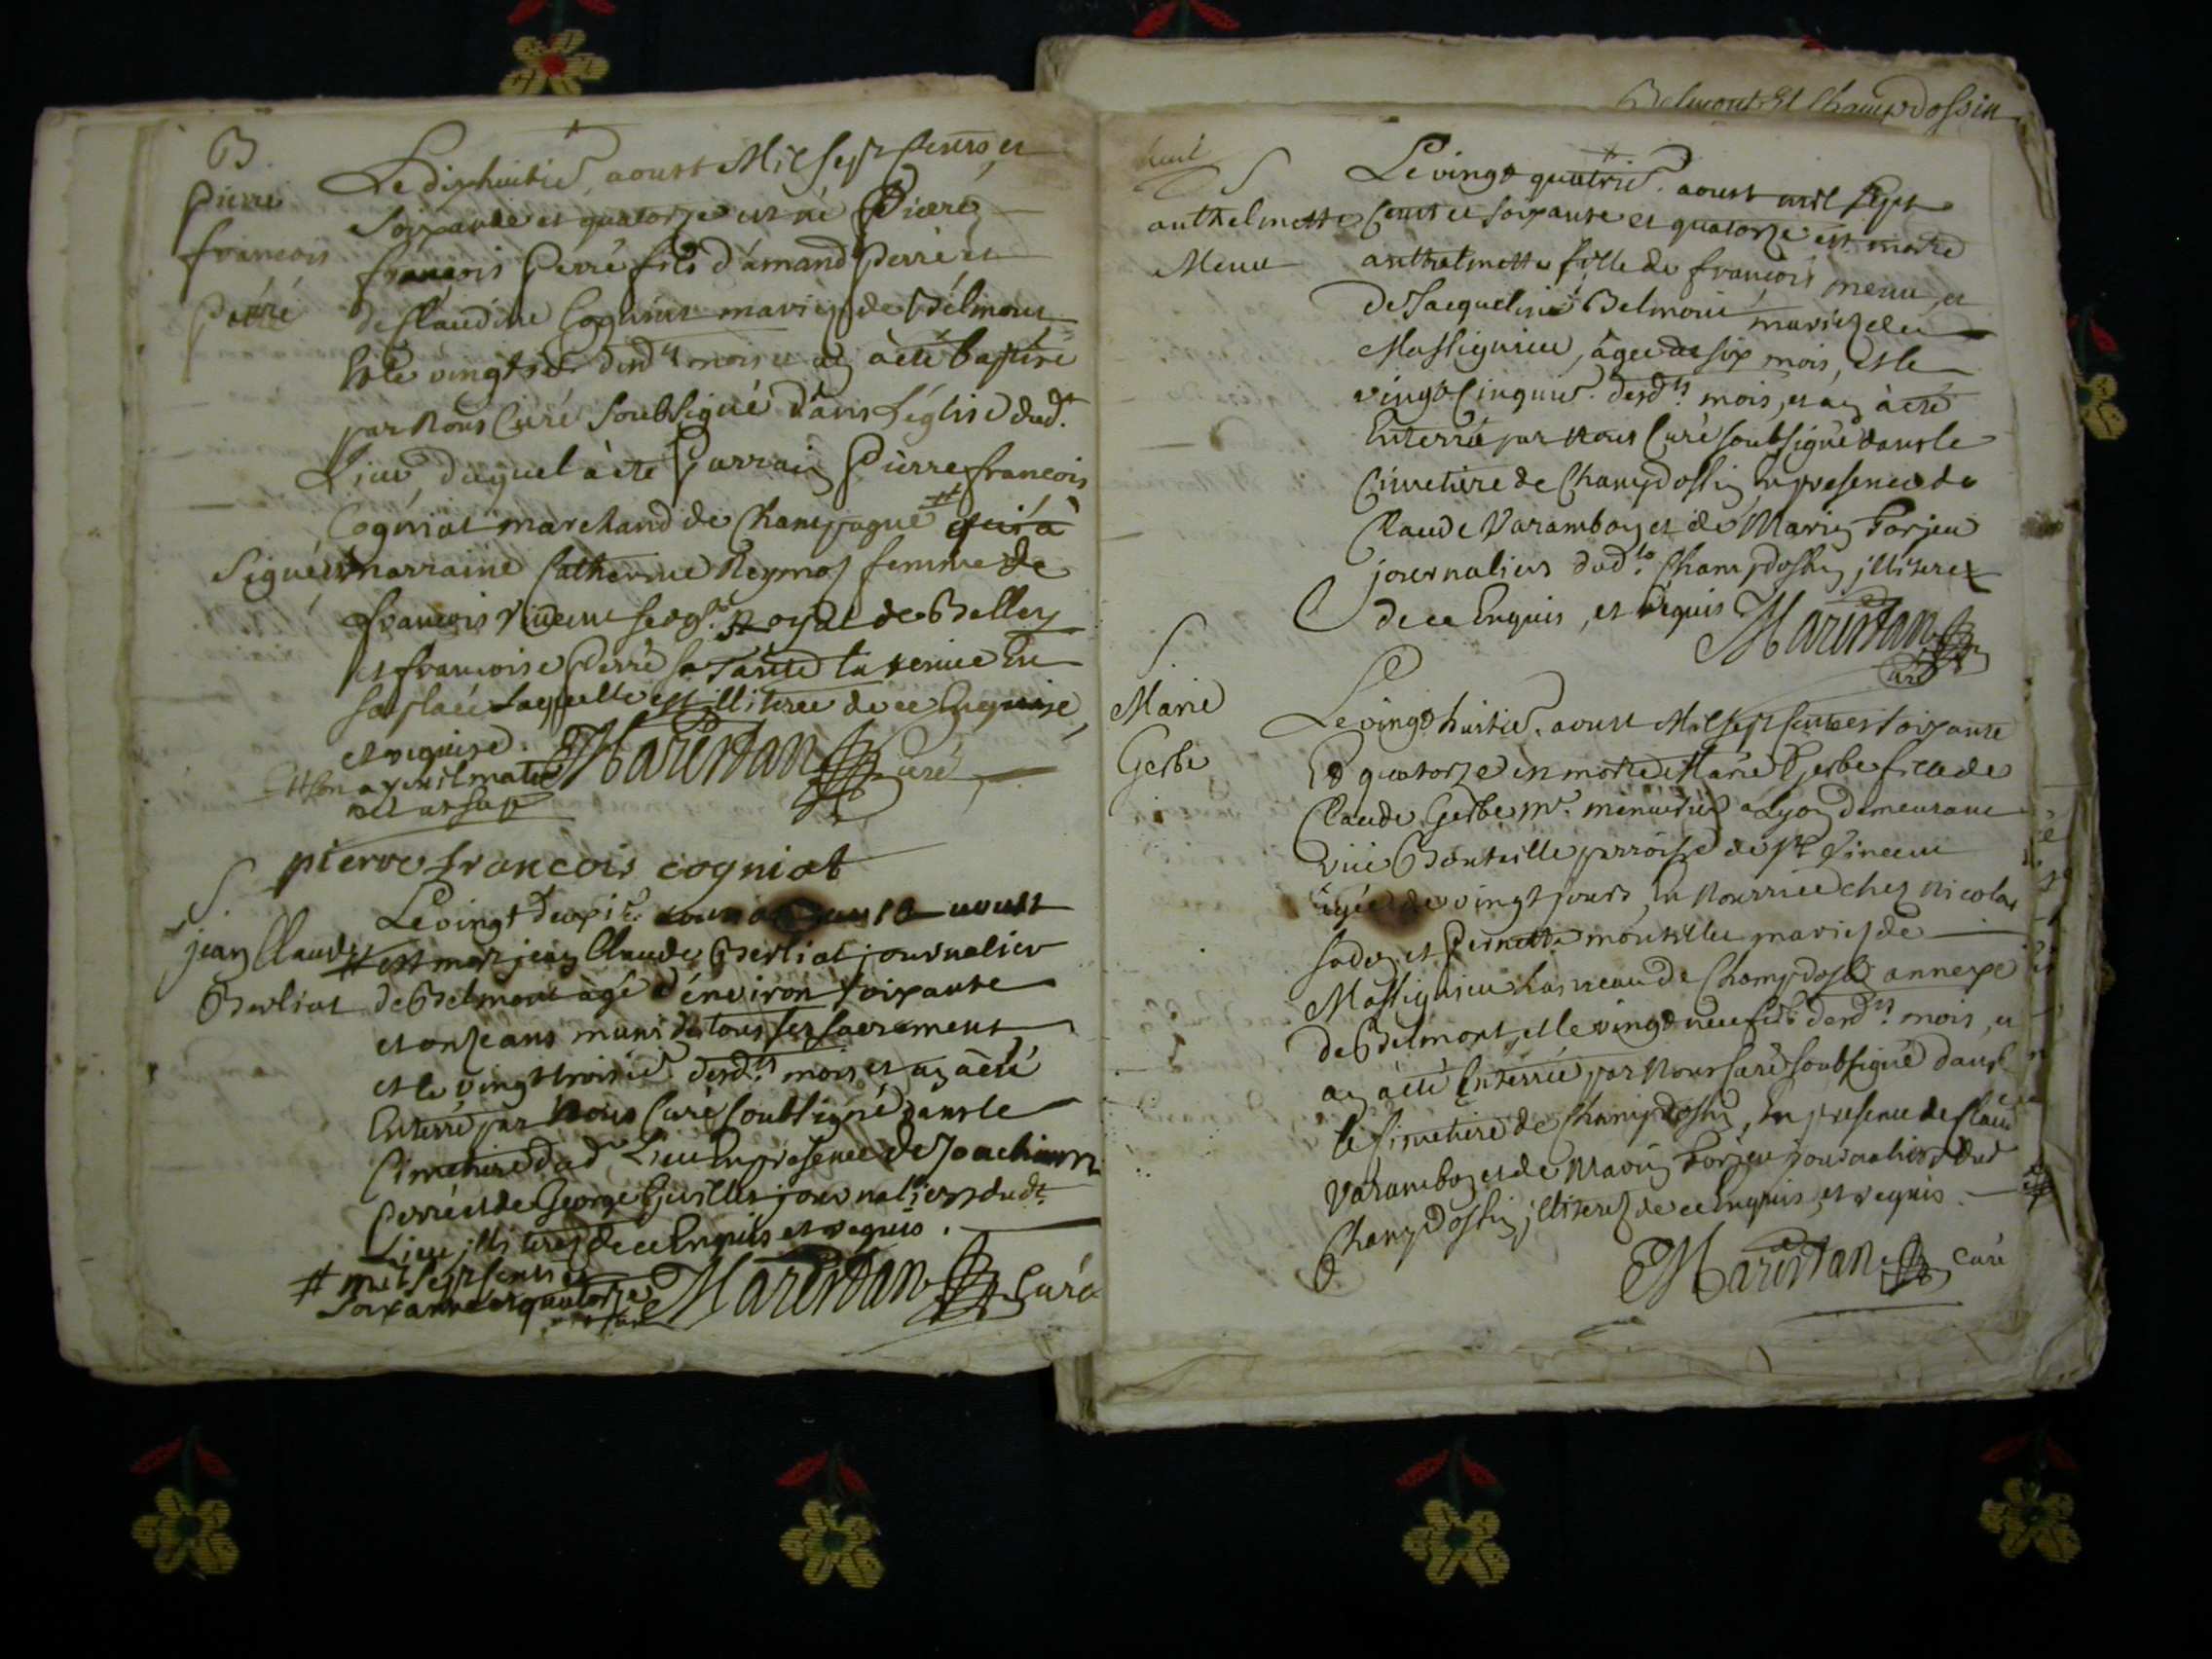 B.
Pierre
francois
Perré
Le dixhuitie. aoust Mil sept Cents et
soixante et quatorze est né Pierre
francois Perré fils d'amand Perré et
de Claudine Cogniat mariez de Belmont
Et le vingtie. desd.ts mois et an à eté baptisé
par Nous Curé soubsigné dans L'église dud.t
Lieu, duquel à eté Parrain Pierre francois
Cogniat marchand de Champagne # qui à
Signé et marraine Catherine Reymoz femme de
francois Vincent Royal de Belley
et francoise Perré sa Tante la tenue En
sa place Laquelle est illiteree de ce Enquise
et requise.
Maristan Curé
# son ayeul mater
nel
pierre francois cogniat
S.
jean Claude
Berliat
Le vingt deuxie. aoust
# est mort jean Claude Berliat journalier
de Belmont àgé d'environ soixante
et onze ans muni de tous ses sacrements
et le vingt troisie. desd.ts mois et an à eté
Enterré par Nous Curé soubsigné dans le
Cimetiere dud.t Lieu En présence de Joachim
Perré et de George Guillet journaliers dud.t
Lieu illiterez de ce Enquis et requis.
# mil sept cents et
soixante et quatorze
Maristan Curé
Belmont Et Champdossin
S
anthelmette
Menu
Le vingt quatrie. aoust mil sept
Cents et soixante et quatorze est morte
anthelmette fille de francois menu, et
de Jacqueline Belmont mariez de
Massignieu, àgée de six mois, et le
vingt Cinquie. desd.ts mois, et an à eté
Enterrée par Nous Curé soubsigné dans le
Cimetiere de Champdossin En presence de
Claude Varambon et de Marin Forjeu
journaliers dud.t Champdossin illiterez
de ce Enquis, et Requis Maristan
Curé
S.
Marie
Gerbe
Le vingt huitie. aoust Mil sept Cents et soixante
Et quatorze est morte Marie Gerbe fille de
Claude Gerbe m.e menuisier a Lyon demeurant
Rüe Bouteille parroisse de S.t Vincent
àgée de vingt jours, En Nourrice chez Nicolas
et Pernette mariez de
Massignieu hameau de Champdossin annexe
de Belmont, et le vingt neufie. desd.ts mois, et
an à eté Enterrée par Nous Curé soubsigné dans
le Cimetiere de Champdossin, En presence de Claude
Varambon et de Marin Forjeu journaliers dud.t
Champdossin illiterez de ce Enquis, et requis.
Maristan Curé